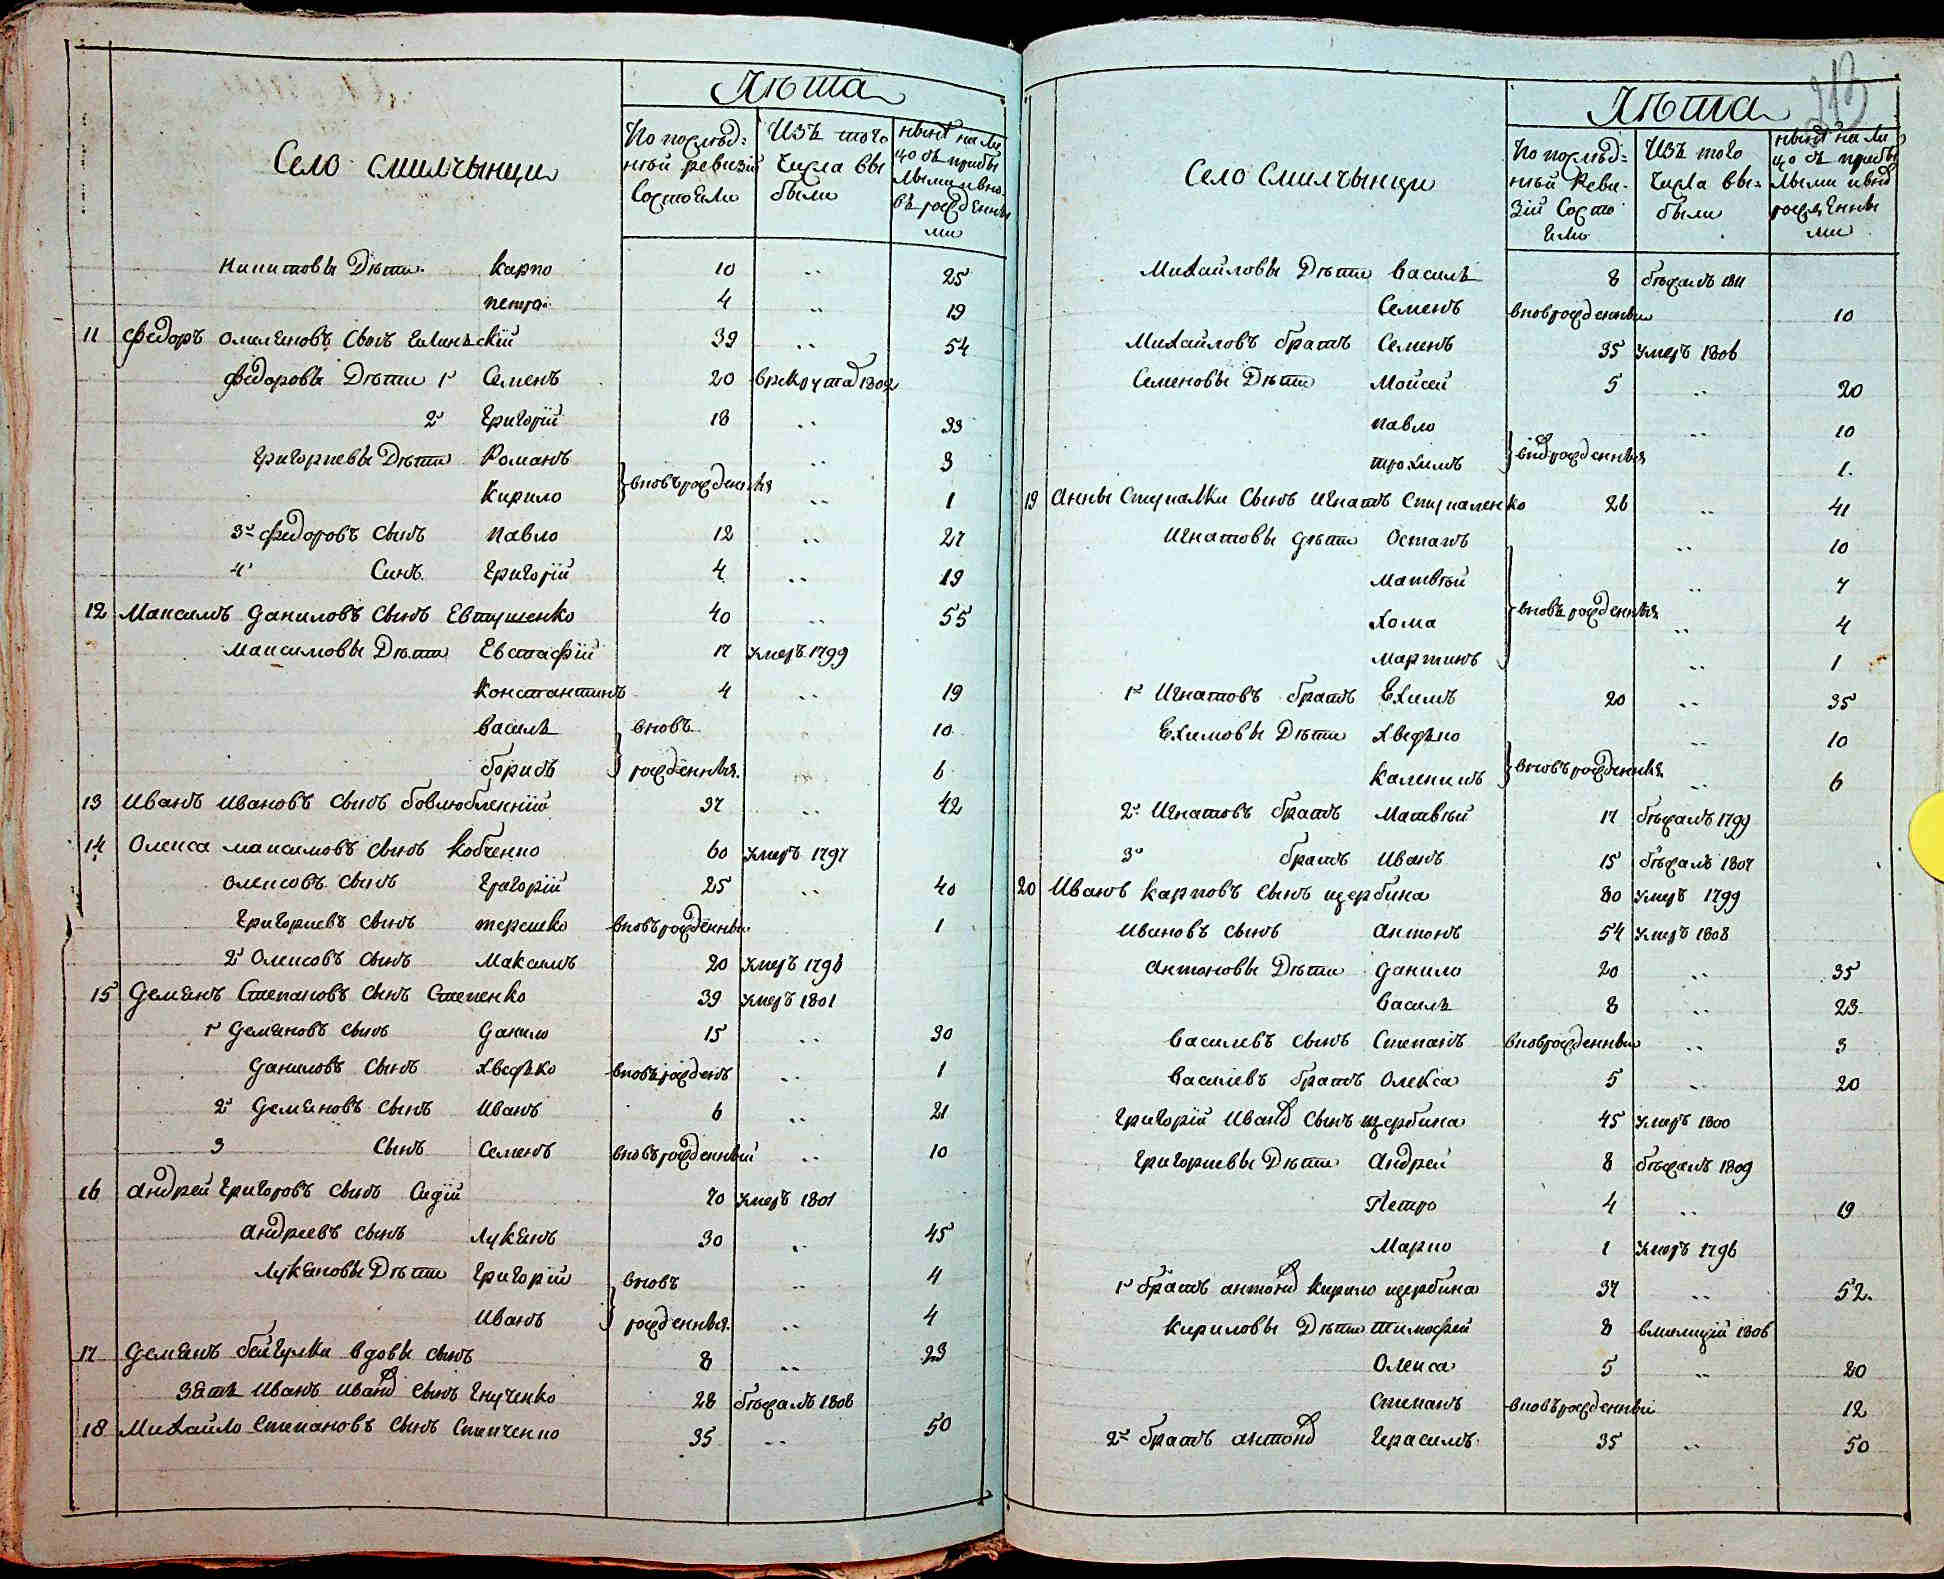 Лѣта
Село Смилчынци
По послѣд=
нѣй ревизіи
состояли
Изъ того
числа вы
были
нынѣ на ли
цо съ прибы
лыми и внов
ь рожденны
ми
Никитовы Дѣти Карпо 10 „ 25
Петро 4 „ 19
11 Федоръ Омеляновъ сынъ Белинскій 39 „ 54
Федоровы Дѣти 1й Семенъ 20 в рекрута 1802
2й Григорій 18 „ 33
Григориевы Дѣти Романъ „ 3
вновьрожденныя
Кирило „ 1
3й Федоровъ сынъ Павло 12 „ 27
4й Синъ Григорій 4 „ 19
12 Максимъ Даниловъ сынъ Евтушенко 40 „ 55
Максимовы Дѣти Евстафій 17 умеръ 1799
Константинъ 4 „ 19
Василь вновь 10
Борисъ рожденныя 6
13 Иванъ Ивановъ сынъ 37 „ 42
14 Олекса Максимовъ сынъ Кобченко 60 умеръ 1797
Олексовъ сынъ Григорій 25 „ 40
Григориевъ сынъ Терешко вновьрожденны 1
2й Олексовъ сынъ Максимъ 20 умеръ 1796
15 Демянъ Степановъ сынъ Степенко 39 умеръ 1801
1й Демяновъ сынъ Данило 15 „ 30
Даниловъ сынъ Хведько вновьрожденъ „ 1
2й Демяновъ сынъ Иванъ 6 „ 21
3 Сынъ Семенъ вновьрожденный „ 10
16 Андрей Григоровъ сынъ Сидій 70 умеръ 1801
Андреевъ сынъ Лукянъ 30 „ 45
Лукяновы Дѣти Григорій вновь „ 4
Иванъ рожденныя „ 4
17 Демянъ вдовы сынъ 8 „ 23
Зять Иванъ Иванов сынъ Гнученко 28 бѣжалъ 1808
18 Михайло Степановъ сынъ Степченко 35 „ 50
Лѣта
Село Смилчынци
По послѣд=
нѣй реви=
зій состо
яли
Изъ того
числа вы=
были
нынѣ на ли
цо съ прибы
лыми и внов
рожденны
ми
Михайловы Дѣти Василь 8 бѣжалъ 1811
Семенъ вноврожденны 10
Михайловъ братъ Семенъ 35 умеръ 1806
Семеновы Дѣти Мойсей 5 „ 20
Павло „ 10
вноврожденныя
Трохимъ 1
19 Анны Ступалки сынъ Игнатъ Ступаленко 26 „ 41
Игнатовы дѣти Остапъ „ 10
Матвѣй „ 7
вновьрожденныя
Хома „ 4
Мартинъ „ 1
1й Игнатовъ братъ Ехимъ 20 „ 35
Ехимовы Дѣти Хведько „ 10
вновьрожденныя
Каленикъ „ 6
2й Игнатовъ братъ Матвѣй 17 бѣжалъ 1799
3й братъ Иванъ 15 бѣжалъ 1807
20 Иванъ Карповъ сынъ Щербина 80 умеръ 1799
Ивановъ сынъ Антонъ 54 умеръ 1808
Антоновы Дѣти Данило 20 „ 35
Василь 8 „ 23
Василевъ сынъ Степанъ вноврожденны „ 3
Василевъ братъ Олекса 5 „ 20
Григорій Иванов сынъ Щербина 45 умеръ 1800
Григориевы Дѣти Андрей 8 бѣжалъ 1809
Петро 4 „ 19
Марко 1 умеръ 1796
1й братъ Антонов Кирило Щербина 37 „ 52
Кириловы Дѣти Тимофей 8 вмилицій 1806
Олекса 5 „ 20
Степанъ вновьрожденный 12
2й братъ Антонов Герасимъ 35 „ 50